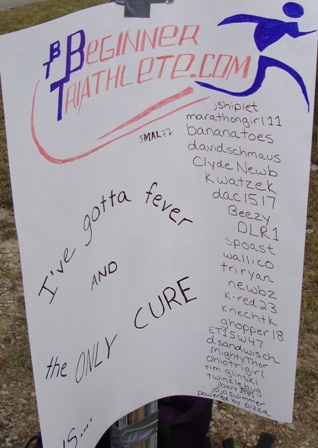 BEGINNER
TRIATHLETE.COM
jshiplet
marathongirl11
bananatoes
davidschmaus
Clyde Newb
Kwatzek
dac1517
Beezy
DLR1
spoast
wallico
triryan
newbz
k-red23
knechtk
ghopper18
ET15W47
dsandwisch
mightythor
ohiotrigirl
tim glinski
twinkle
jojoswimmer
powered by pizza
I've gotta fever
AND
the ONLY CURE
is...